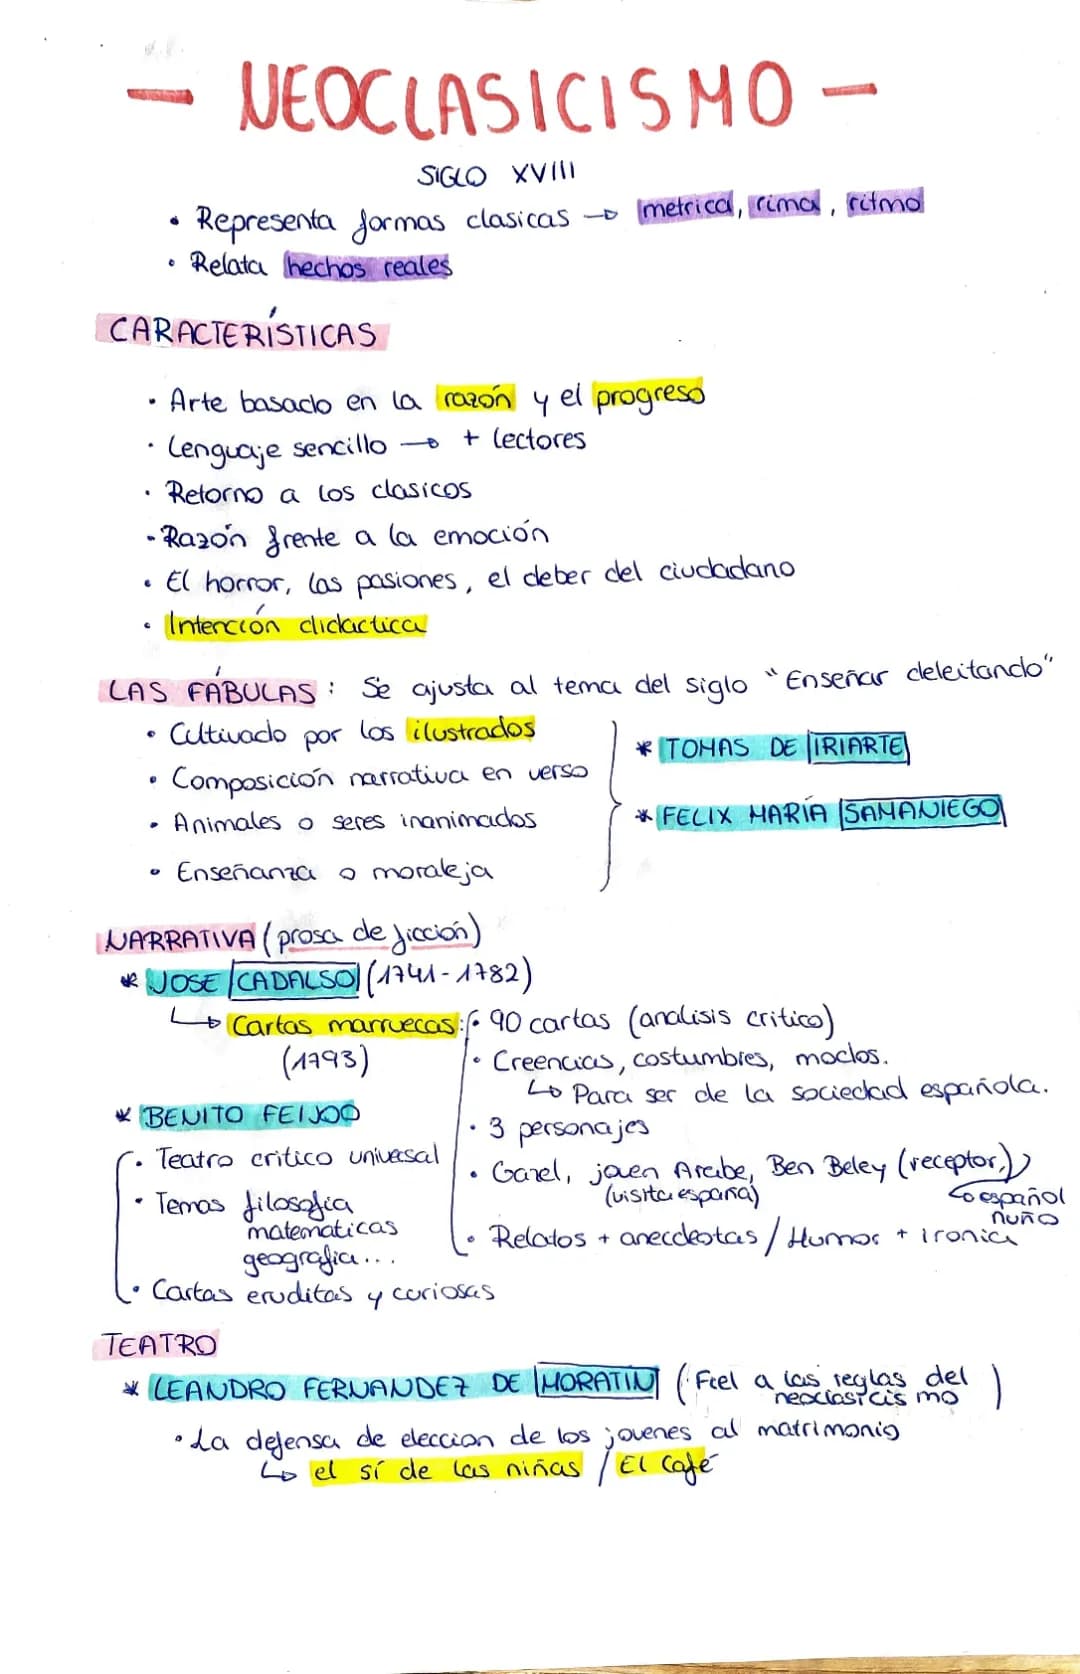 - NEOCLASICISMO -
SIGLO XVIII
• Representa formas clasicas → metrica, rima, ritmo
• Relata hechos reales
CARACTERÍSTICAS
• Arte basado en la razón y el progreso
• Lenguaje sencillo → + lectores
• Retorno a los clasicos
• Razón frente a la emoción
• El horror, las pasiones, el deber del ciudadano
• Intención didactica
LAS FÁBULAS: Se ajusta al tema del siglo "Enseñar deleitando"
• Cultivado por los ilustrados
• Composición narrativa en verso
• Animales o seres inanimados
• Enseñanza o moraleja
* TOMAS DE IRIARTE
* FELIX MARÍA SAMANIEGO
NARRATIVA (prosa de ficción)
* JOSE CADALSO (1741-1782)
↳ Cartas marruecas:
(1793)
• 90 cartas (analisis critico)
• Creencias, costumbres, modos.
↳ Para ser de la sociedad española.
• 3 personajes
• Gazel, joven Arabe, Ben Beley (receptor,)
(visita españa)
↳ español
nuño
• Relatos + anecdotas / Humor + ironia
* BENITO FEIJOO
• Teatro critico universal
• Temas filosofia
matematicas
geografia...
• Cartas eruditas y curiosas
TEATRO
* LEANDRO FERNANDEZ DE MORATIN (Fiel a las reglas del
neoclasicismo)
• La defensa de eleccion de los jovenes al matrimonio
↳ el sí de las niñas / El Café